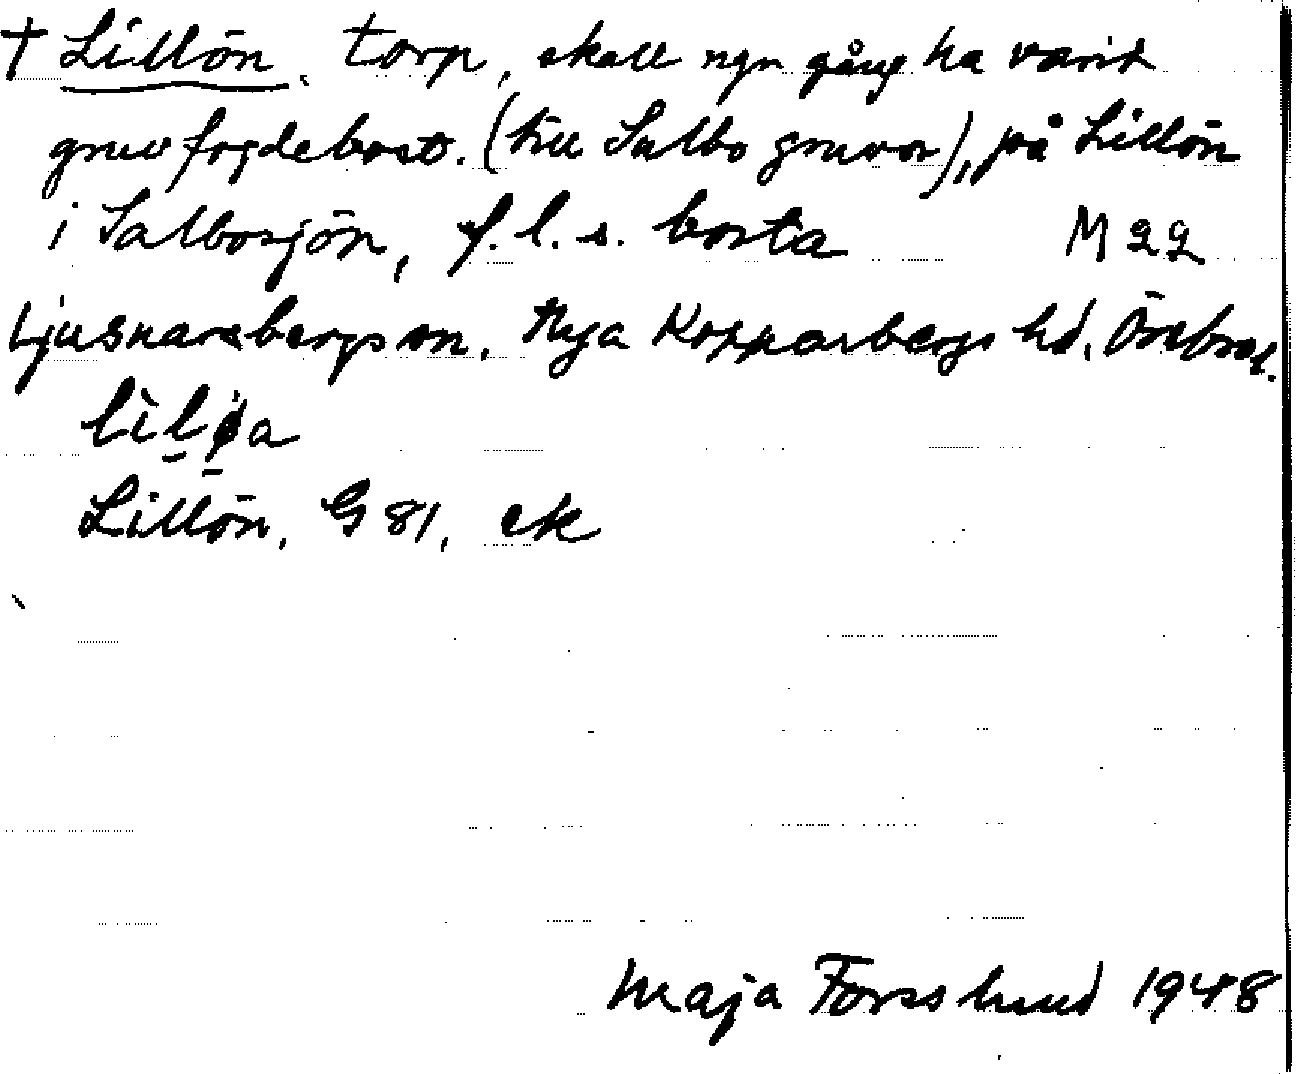 † Lillön, torp, skall ngn gång ha varit
gruvfogdebost. (till Salbo gruvor), på Lillön
i Salbosjön, f.l.s. borta M 22
Ljusnarsbergs sn, Nya Kopparbergs hd, Örebro l.
Lillön, G 81, ek
Maja Forsslund 1948